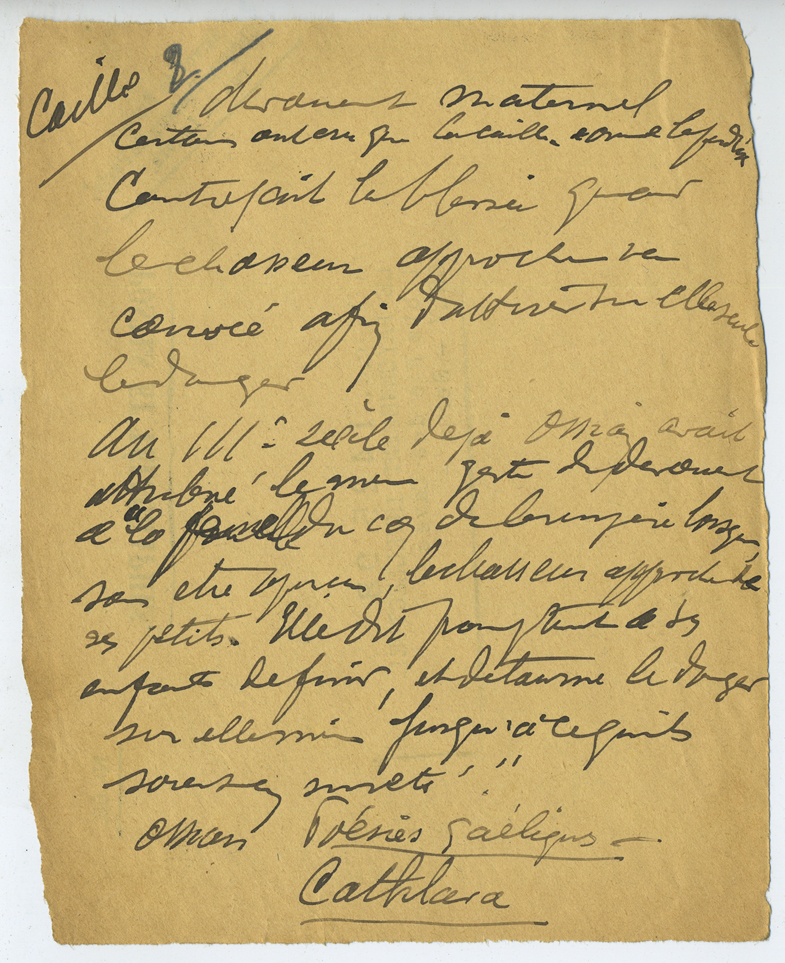 Caille 8
dévouement maternel
Certains ont cru que la caille comme la perdrix
Contrefait la blessée quand
le chasseur approche sa
couvée afin d'attirer sur elle seule
le danger
Au IIIe siècle déjà Ossian avait
attribué le même geste de dévouement
à la femelle du coq de bruyère lorsque
sans être aperçu, le chasseur approche de
ses petits. Elle dit promptement à ses
enfants de fuir, et détourne le danger
sur elle même jusqu'à ce qu'ils
soient en sureté"
Ossian Poésies gaéliques –